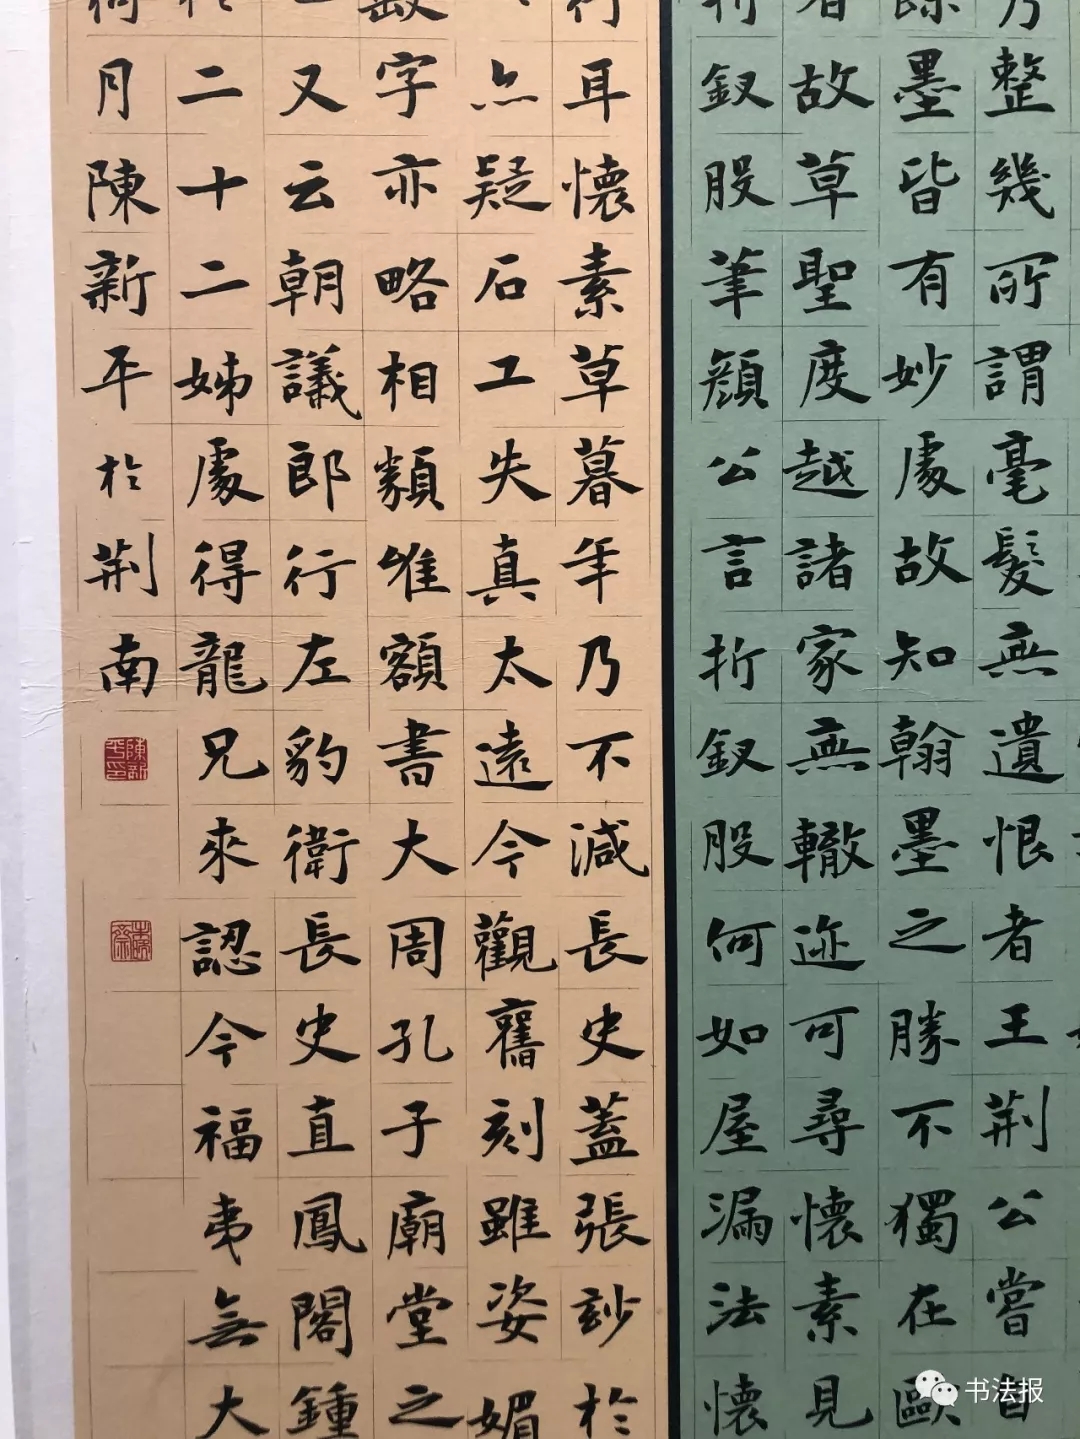 乃整幾所謂毫髮無遺恨者王荆公嘗自
墨皆有妙處故知翰墨之勝不獨在歐
者故草聖度越諸家無轍迹可尋懷素見
釵股筆顔公言折釵股何如屋漏法懷
行耳懷素草暮年乃不減長史蓋張妙於
亦疑石工失真太遠今觀舊刻雖姿媚
字亦略相類唯額書大周孔子廟堂之
又云朝議郎行左豹衛長史直鳳閣鍾
於二十二姊處得龍兄來認今福夷無大
月陳新平於荆南
陳新平印
書法报